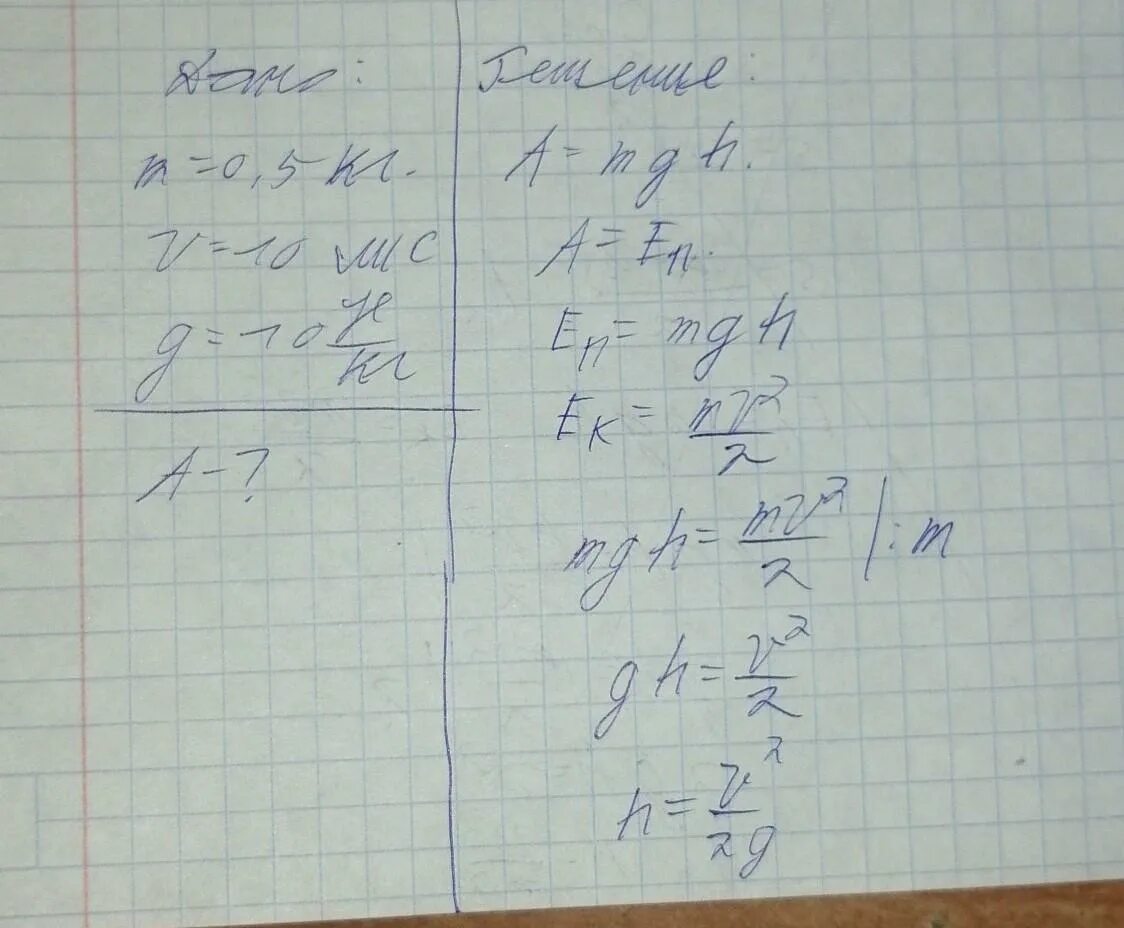 Дано:
m=0,5 кг.
v=10 м/с
g=10 Н/кг
A-?
Решение:
A=mgh.
A=Eп.
Eп=mgh
Eк=mv²/2
mgh=mv²/2 |:m
gh=v²/2
h=v²/2g